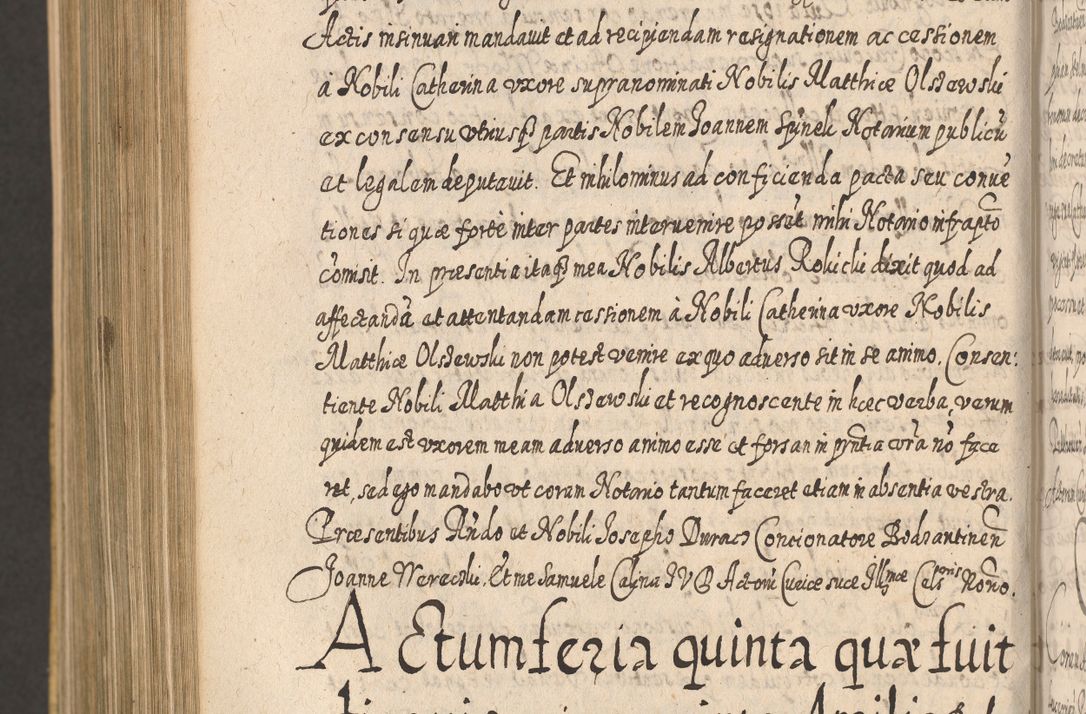 Actis insinuari mandavit et ad recipiendam resignationem ac cessionem
à Nobili Catherina uxore supranominati Nobilis Matthiæ Olszewski
ex consensu utriusq̃ partis Nobilem Joannem Spinek Notarium publicũ
et legalem deputavit. Et nihilominus ad conficienda pacta seu convẽ
tiones si quæ fortè inter partes intervenire possẽt mihi Notario infrapto
cõmisit. In præsentia itaq̃ mea Nobilis Albertus Rokicki dixit quod ad
affectandã et attentandam cessionem à Nobili Catherina uxore Nobilis
Matthiæ Olszewski non potest venire ex quo adverso sit in se animo. Consen:
tiente Nobili Matthia Olszewski et recognoscente in hæc verba, verum
quidem est uxorem meam adverso animo esse et forsan in pñtia vrã nõ face
ret, sed ego mandabo ut coram Notario tantum faceret etiam in absentia vestra.
Præsentibus Rñdo et Nobili Josepho Duracz Concionatore Bodzantinen
Joanne Werecki. Et me Samuele Calina JVD Actorũ Curiæ suæ Illmæ Celsnis Notrio.
Actum feria quinta quæ fuit